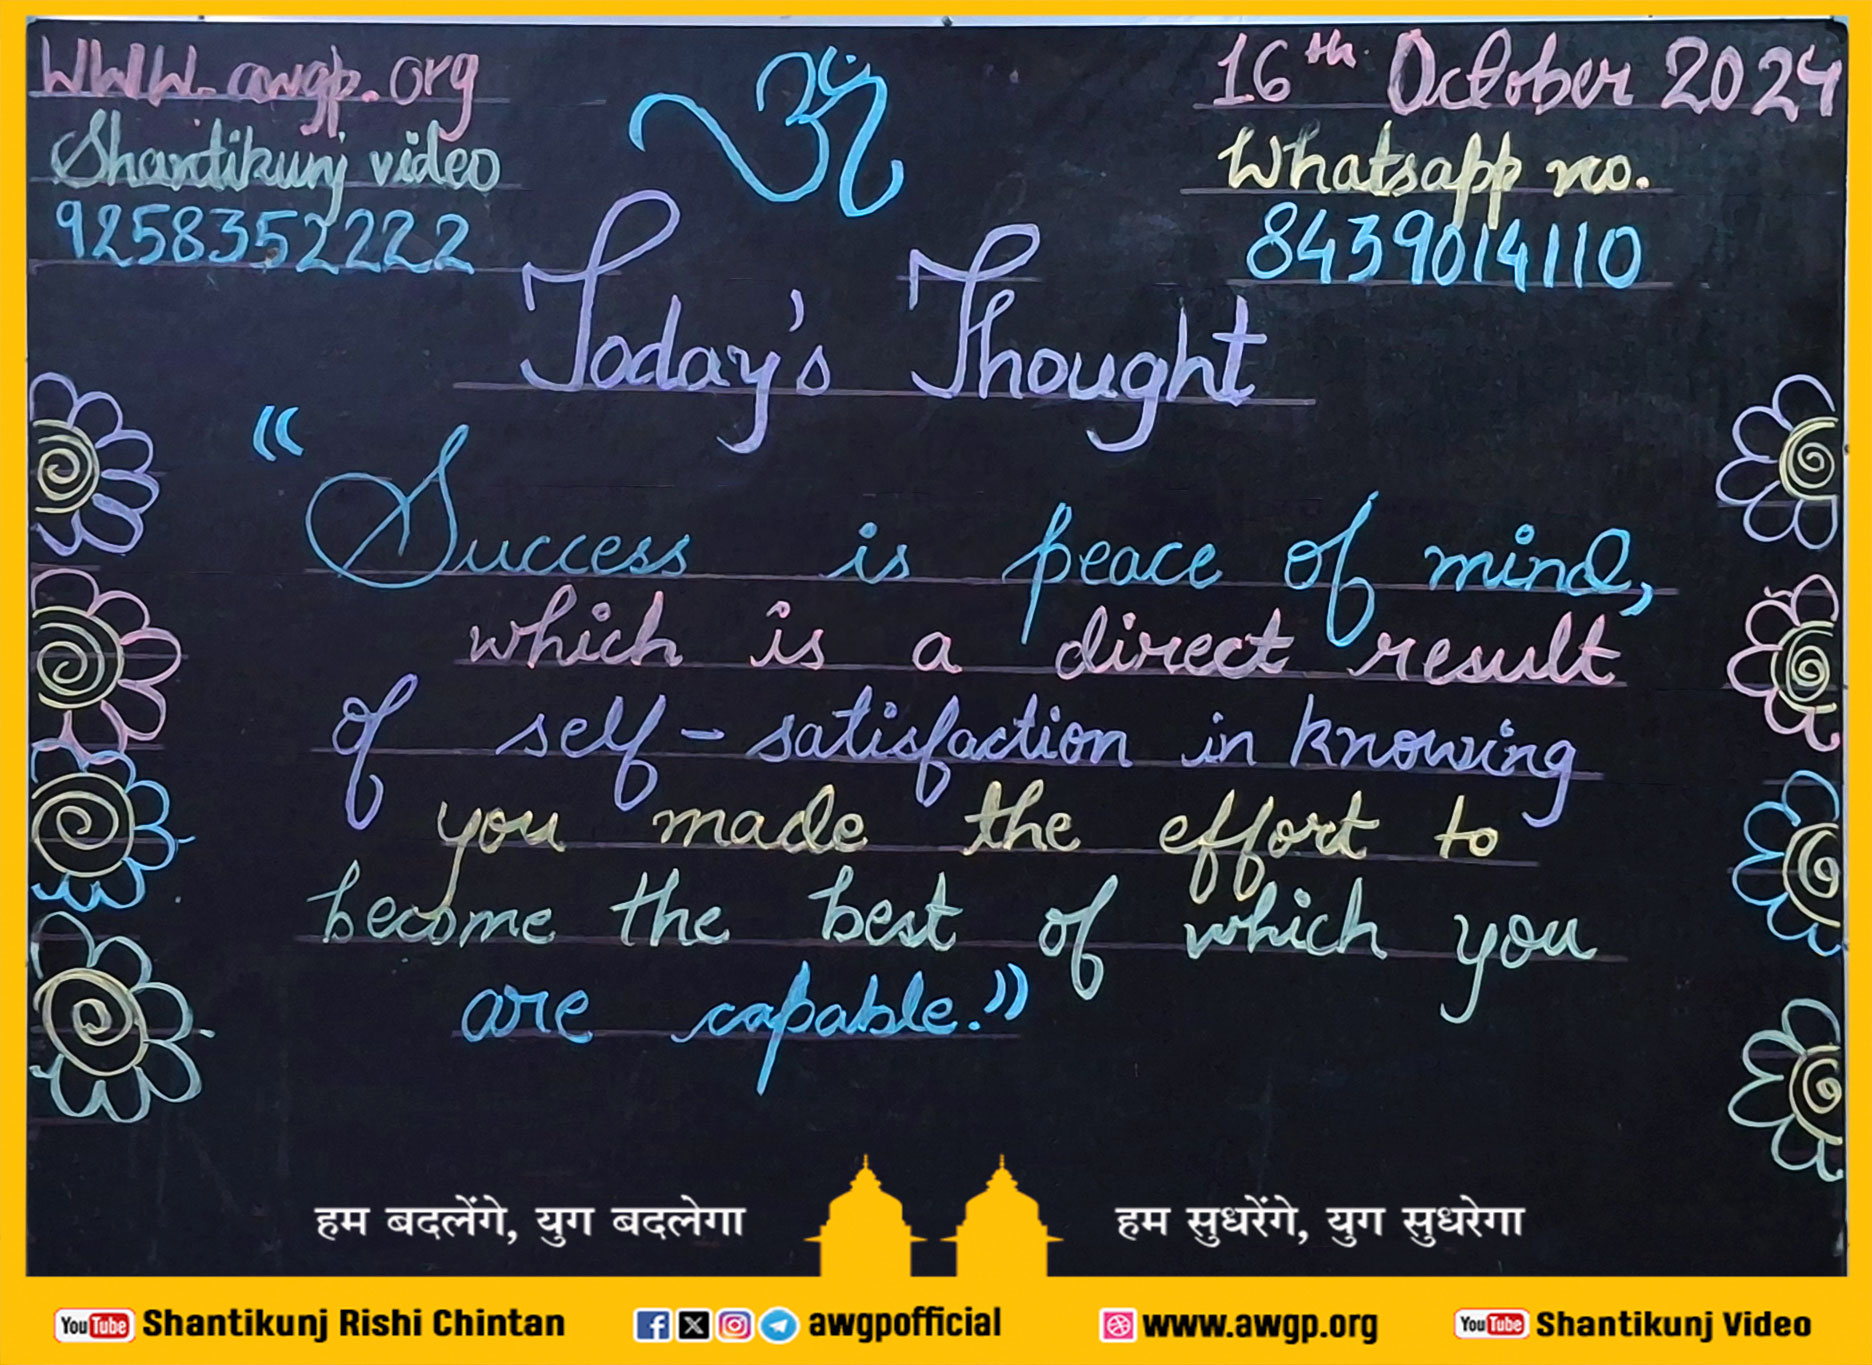 www.awgp.org
Shantikunj video
9258352222
ॐ
16th October 2024
Whatsapp no.
8439014110
Today's Thought
"Success is peace of mind,
which is a direct result
of self-satisfaction in knowing
you made the effort to
become the best of which you
are capable."
हम बदलेंगे, युग बदलेगा
हम सुधरेंगे, युग सुधरेगा
YouTube Shantikunj Rishi Chintan
awgpofficial
www.awgp.org
YouTube Shantikunj Video